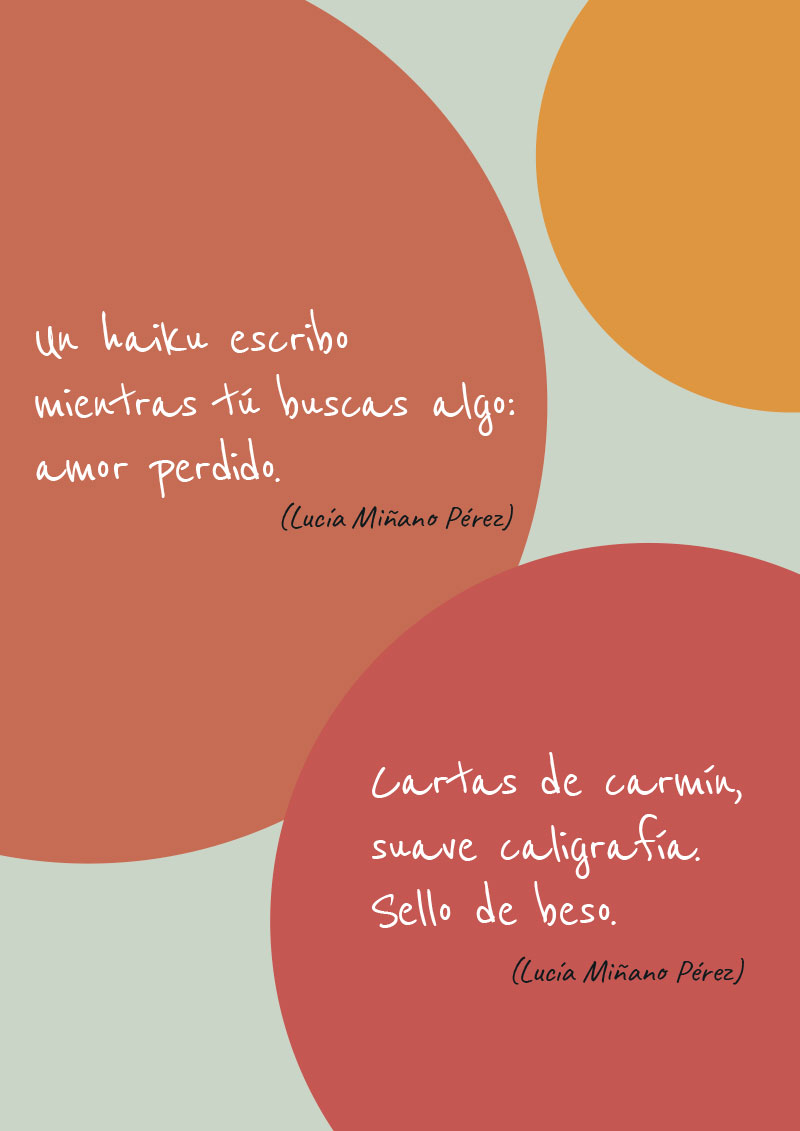 Un haiku escribo
mientras tú buscas algo:
amor perdido.
(Lucía Miñano Pérez)
Cartas de carmín,
suave caligrafía.
Sello de beso.
(Lucía Miñano Pérez)